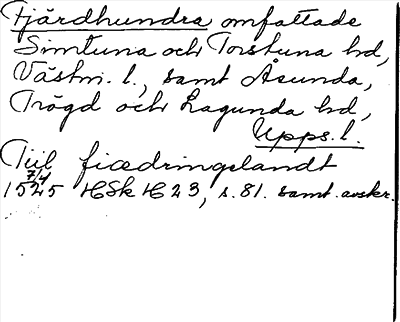 Fjärdhundra omfattade
Simtuna och Torstuna hd,
Västm. l., samt Åsunda,
Trögd och Lagunda hd,
Upps. l.
Tiil fiædringslandt
7/4
1525 HSk H 23, s. 81. samt. avskr.